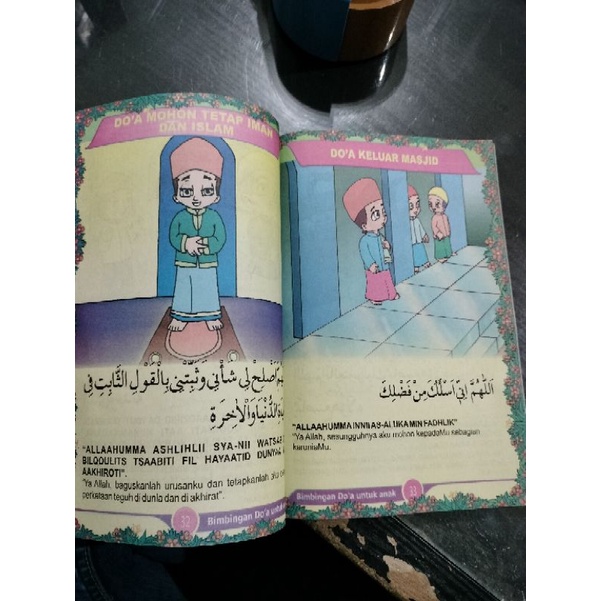 DO'A MOHON TETAP IMAN
DAN ISLAM
اَصْلِحْ لِي شَأْنِي وَثَبِّتْنِي بِالْقَوْلِ الثَّابِتِ فِي
الدُّنْيَا وَالْاٰخِرَةِ
"ALLAAHUMMA ASHLIHLII SYA-NII WATSAB
BILQOULITS TSAABITI FIL HAYAATID DUNYAA
AAKHIROTI".
"Ya Allah, baguskanlah urusanku dan tetapkanlah aku
perkataan teguh di dunia dan di akhirat".
32
Bimbingan Do'a untuk
DO'A KELUAR MASJID
اَللّٰهُمَّ اِنِّي اَسْئَلُكَ مِنْ فَضْلِكَ
"ALLAAHUMMA INNII AS-ALUKA MIN FADHLIK"
"Ya Allah, sesungguhnya aku mohon kepadaMu sebagian
karuniaMu.
Bimbingan Do'a untuk anak
33